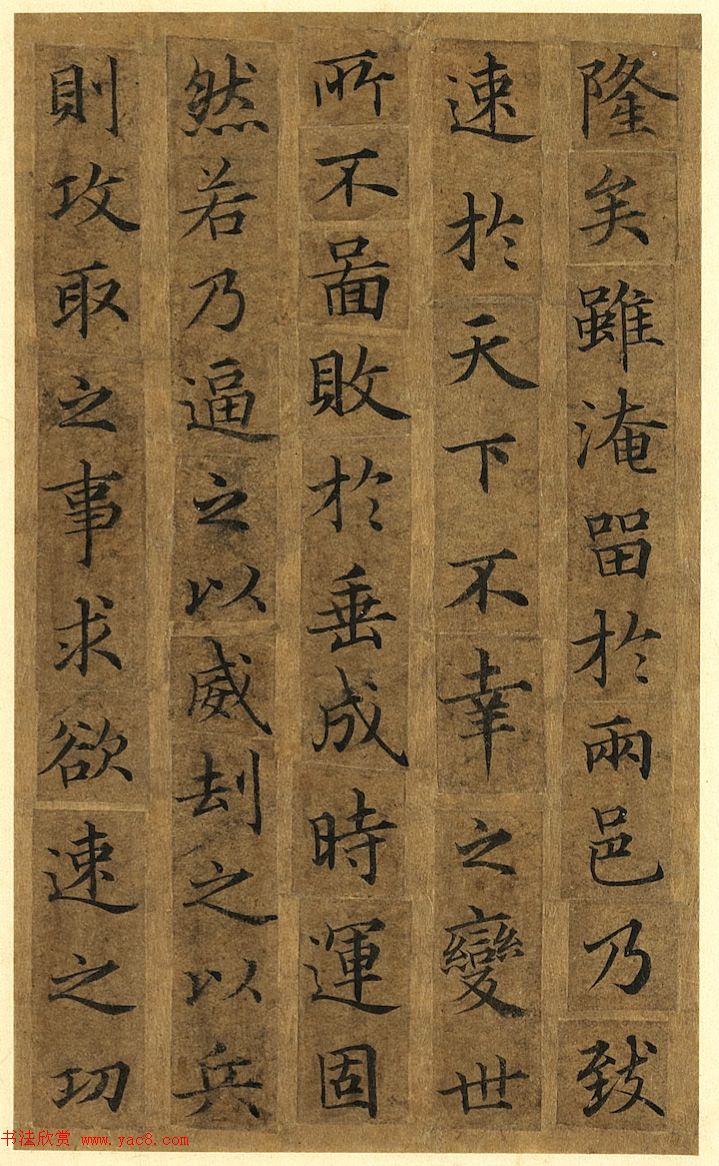 隆矣雖淹留於兩邑乃致
速於天下不幸之變世
所不啚敗於垂成時運固
然若乃逼之以威刦之以兵
則攻取之事求欲速之功
书法欣赏 www.yac8.com